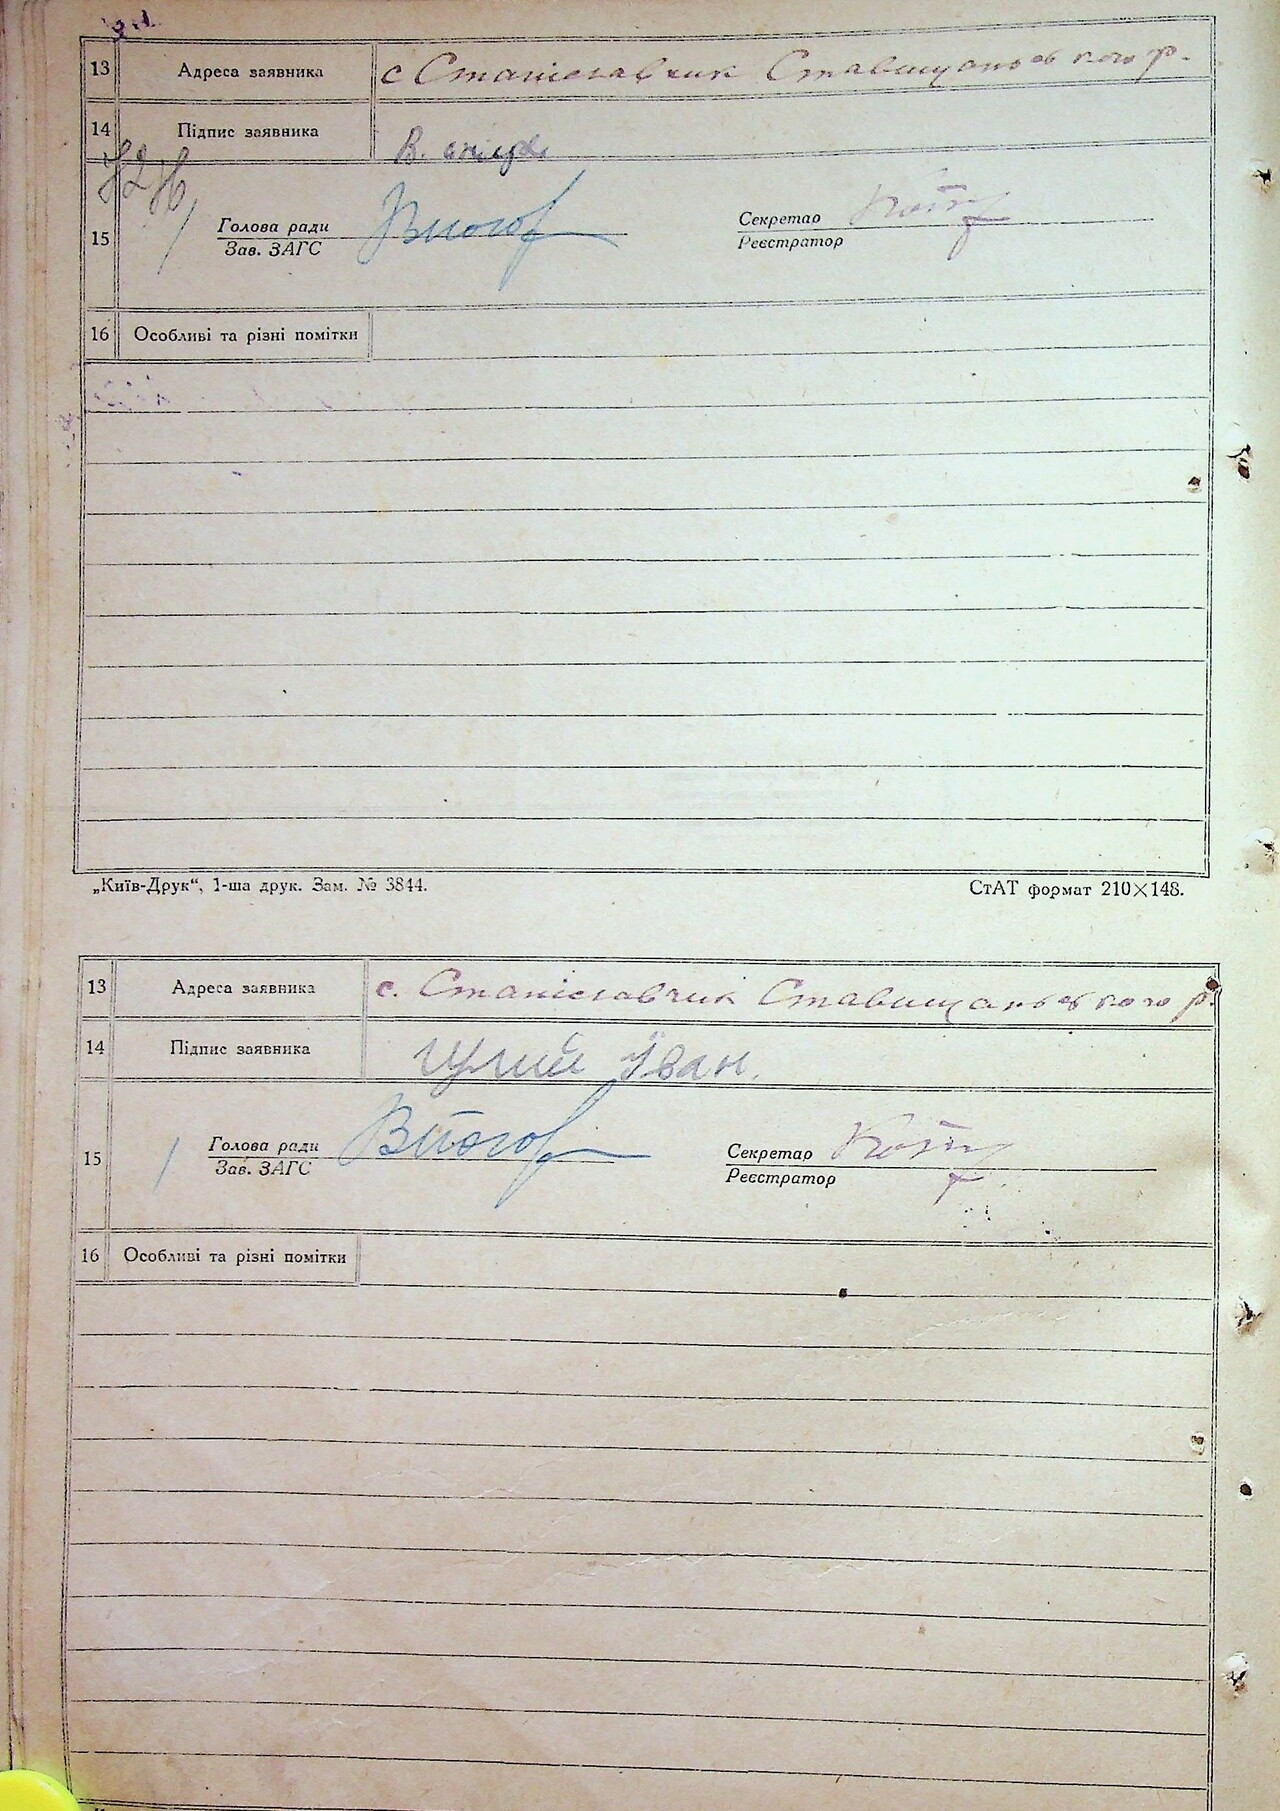 13 Адреса заявника с Станіславчик Ставищанського р.
14 Підпис заявника В.
15 Голова ради Секретар
Зав. ЗАГС Реєстратор
16 Особливі та різні помітки
„Київ-Друк“, 1-ша друк. Зам. № 3844. СтАТ формат 210×148.
13 Адреса заявника с. Станіславчик Ставищанського р.
14 Підпис заявника Іван.
15 Голова ради Секретар
Зав. ЗАГС Реєстратор
16 Особливі та різні помітки